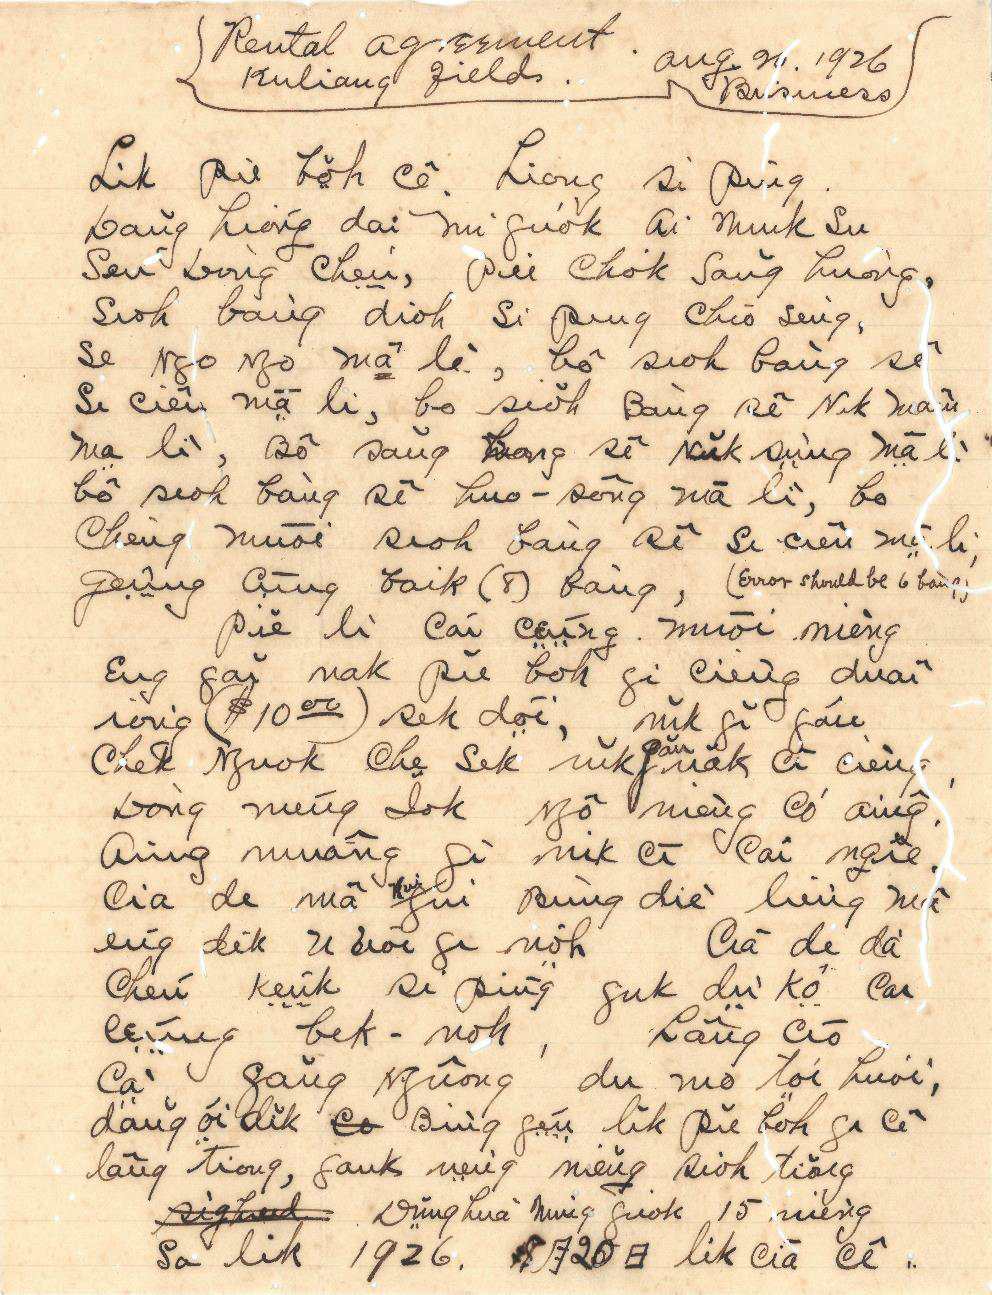 Rental agreement.
Kuliang Fields. Aug 20. 1926
Business
Lik piĕ bŏh cê. Liong si ping.
Dang hiong dai mi guok Ai Muk Su
Seu Dong Cheu, piĕ chok sang huong,
Sioh bang dioh si ping chio seng,
Se Ngo Ngo mā lĕ, bô sioh bang sê
Se ciĕu mā li, bo sioh bang sê Nik
ma li, Bô sang bang sê Nŭk sŭng mā li
bô sioh bang sê huo-sông mā li, bo
Cheng muoi sioh bang sê Se ciĕu mā li,
geung Gung baik (8) bang, (Error should be 6 bang)
piĕ li cai ceung muoi nieng
Eng gai nak piĕ boh gi cieng duai
iong ($10.00) sek doi, nik gi gau
Chek Nguok Che Sek nik gau nak ci cieng,
Dong neung Iok Ngô nieng Có aing,
Aing nuang gi nik ci Cai ngie.
Cia de mā gui Bung diĕ lieng mā
eng dik gi noh Cia de dā
Cheu keuk si ping guk du kó cai
ceung bek-noh, Lang Cio
Ca Gang Nguong du mo toi huoi,
dang ói dik Bing geu lik piĕ boh gi cê
lang tiong, gauk neng nieng sioh tiong
Dung hua Ming Guok 15 nieng
Sa lik 1926. 7 20 lik cia cê.